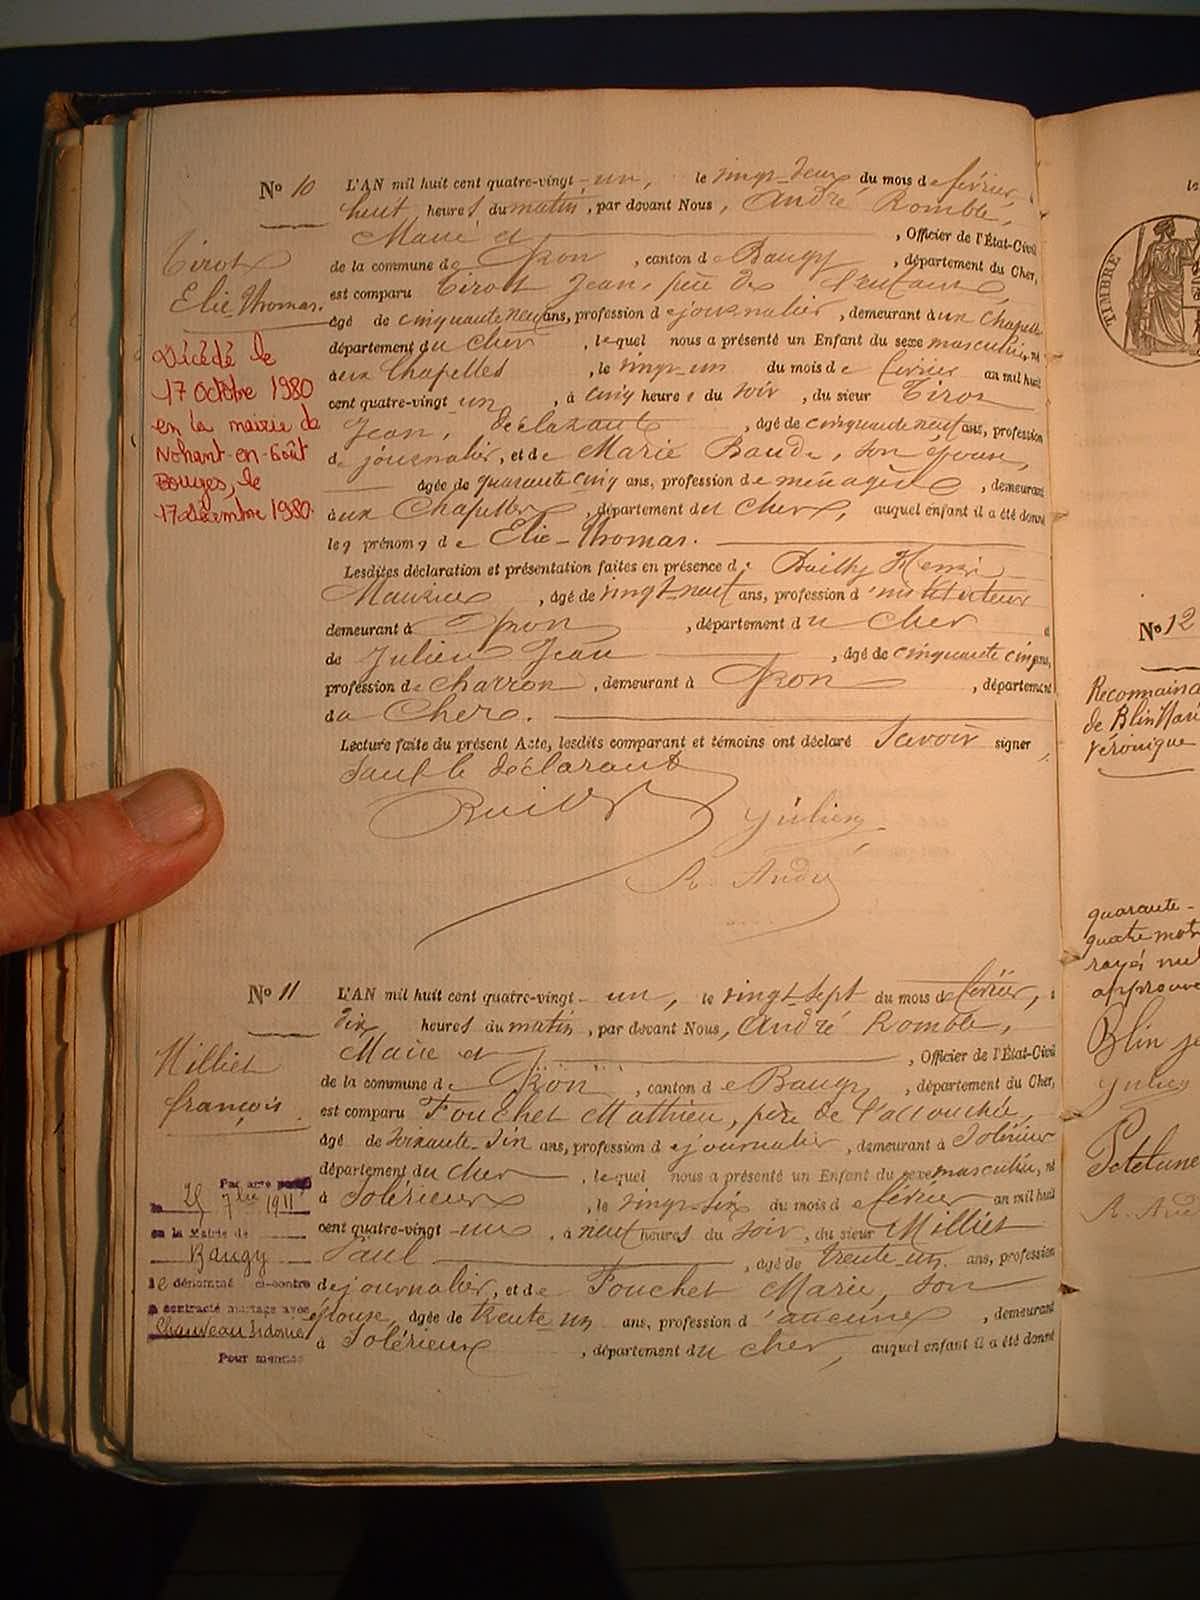 No 10
L'AN mil huit cent quatre-vingt-un, le vingt-deux du mois de février,
huit heures du matin, par devant Nous, André Romble,
Maire et , Officier de l'État-Civil
de la commune de , canton de Baugy, département du Cher,
est comparu Tirot Jean, père de l'enfant,
âgé de cinquante neuf ans, profession de journalier, demeurant à ux Chapelles
département du Cher, lequel nous a présenté un Enfant du sexe masculin, né
à ux Chapelles, le vingt-un du mois de février an mil huit
cent quatre-vingt un, à cinq heures du soir, du sieur Tirot
Jean, déclarant, âgé de cinquante neuf ans, profession
de journalier, et de Marie Baude, son épouse,
âgée de quarante cinq ans, profession de ménagère, demeurant
à ux Chapelles, département du Cher, auquel enfant il a été donné
les prénoms de Elie-Thomas.
Lesdites déclaration et présentation faites en présence de Henri
Maurice, âgé de vingt-neuf ans, profession d'instituteur
demeurant à , département du Cher et
de Julien Jean, âgé de cinquante cinq ans,
profession de charron, demeurant à , département
du Cher.
Lecture faite du présent Acte, lesdits comparant et témoins ont déclaré savoir signer,
sauf le déclarant
Julien
R. André
Tirot
Elie-Thomas.
Décédé le
17 Octobre 1980
en la mairie de
Nohant-en-Goût
Bourges, le
17 décembre 1980.
No 11
L'AN mil huit cent quatre-vingt-un, le vingt-sept du mois de février, à
dix heures du matin, par devant Nous, André Romble,
Maire et , Officier de l'État-Civil
de la commune de , canton de Baugy, département du Cher,
est comparu Fouchet Mathieu, père de l'accouchée,
âgé de soixante-dix ans, profession de journalier, demeurant à Solérieux
département du Cher, lequel nous a présenté un Enfant du sexe masculin, né
à Solérieux, le vingt-six du mois de février an mil huit
cent quatre-vingt-un, à neuf heures du soir, du sieur Milliet
Paul, âgé de trente un ans, profession
de journalier, et de Fouchet Marie, son
épouse, âgée de trente un ans, profession d'aucune, demeurant
à Solérieux, département du Cher, auquel enfant il a été donné
Milliet
françois
Par acte
le 25 7bre 1911
en la Mairie de
Baugy
le dénommé ci-contre
a contracté mariage avec
Chauveau Sidonie
Pour mention
TIMBRE
No 12
de Blin
Véronique
quarante-
quatre mots
rayés nul
approuvé
Blin
Julien